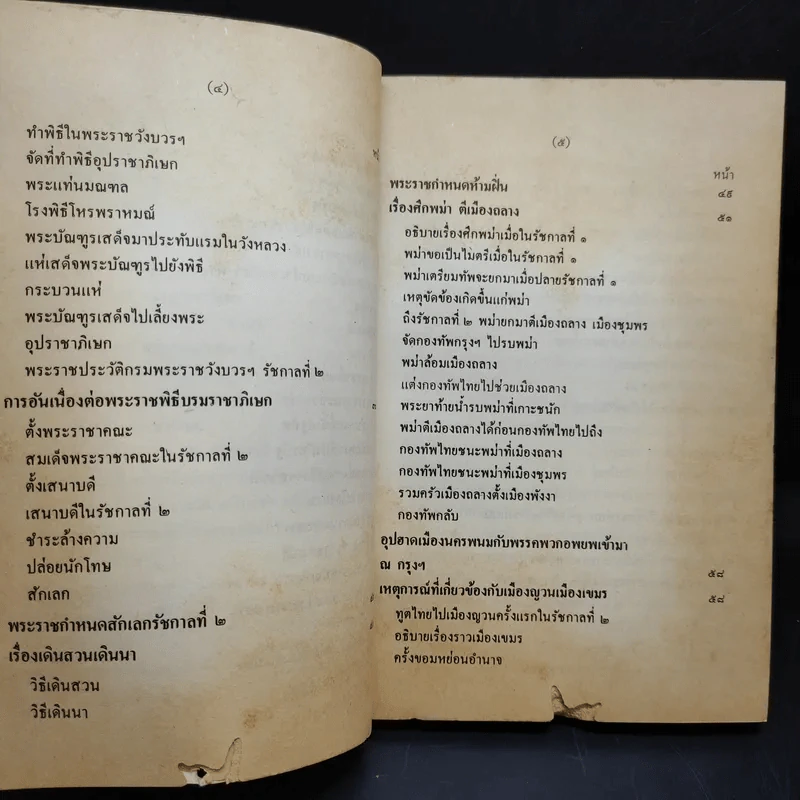 (๔)
ทำพิธีในพระราชวังบวรฯ
จัดที่ทำพิธีอุปราชาภิเษก
พระแท่นมณฑล
โรงพิธีโหรพราหมณ์
พระบัณฑูรเสด็จมาประทับแรมในวังหลวง
แห่เสด็จพระบัณฑูรไปยังพิธี
กระบวนแห่
พระบัณฑูรเสด็จไปเลี้ยงพระ
อุปราชาภิเษก
พระราชประวัติกรมพระราชวังบวรฯ รัชกาลที่ ๒
การอันเนื่องต่อพระราชพิธีบรมราชาภิเษก
ตั้งพระราชาคณะ
สมเด็จพระราชาคณะในรัชกาลที่ ๒
ตั้งเสนาบดี
เสนาบดีในรัชกาลที่ ๒
ชำระล้างความ
ปล่อยนักโทษ
สักเลก
พระราชกำหนดสักเลกรัชกาลที่ ๒
เรื่องเดินสวนเดินนา
วิธีเดินสวน
วิธีเดินนา
(๕)
หน้า
พระราชกำหนดห้ามฝิ่น ๔๙
เรื่องศึกพม่า ตีเมืองถลาง ๕๑
อธิบายเรื่องศึกพม่าเมื่อในรัชกาลที่ ๑
พม่าขอเป็นไมตรีเมื่อในรัชกาลที่ ๑
พม่าเตรียมทัพจะยกมาเมื่อปลายรัชกาลที่ ๑
เหตุขัดข้องเกิดขึ้นแก่พม่า
ถึงรัชกาลที่ ๒ พม่ายกมาตีเมืองถลาง เมืองชุมพร
จัดกองทัพกรุงฯ ไปรบพม่า
พม่าล้อมเมืองถลาง
แต่งกองทัพไทยไปช่วยเมืองถลาง
พระยาท้ายน้ำรบพม่าที่เกาะชนัก
พม่าตีเมืองถลางได้ก่อนกองทัพไทยไปถึง
กองทัพไทยชนะพม่าที่เมืองถลาง
กองทัพไทยชนะพม่าที่เมืองชุมพร
รวมครัวเมืองถลางตั้งเมืองพังงา
กองทัพกลับ
อุปฮาดเมืองนครพนมกับพรรคพวกอพยพเข้ามา
ณ กรุงฯ ๕๘
เหตุการณ์ที่เกี่ยวข้องกับเมืองญวนเมืองเขมร ๕๘
ทูตไทยไปเมืองญวนครั้งแรกในรัชกาลที่ ๒
อธิบายเรื่องราวเมืองเขมร
ครั้งขอมหย่อนอำนาจ